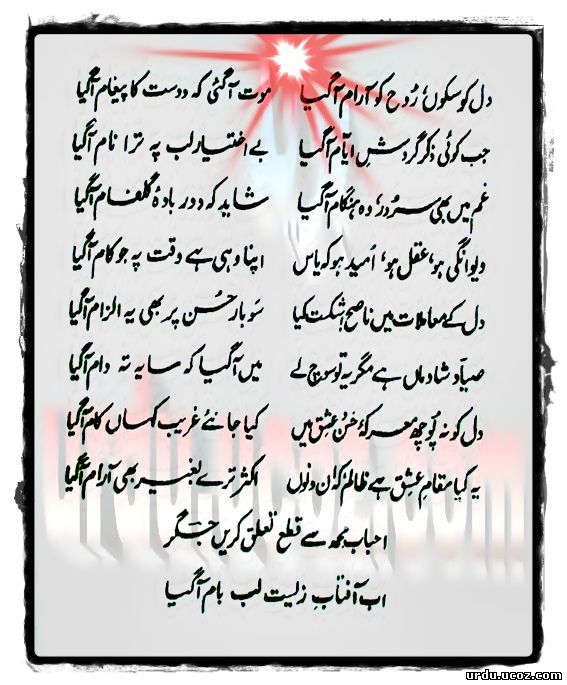 دل کو سکوں، رُوح کو آرام آ گیا موت آ گئی کہ دوست کا پیغام آ گیا
جب کوئی ذکرِ گردشِ ایّام آ گیا بے اختیار لب پہ ترا نام آ گیا
غم میں بھی ہے سرور، وہ ہنگام آ گیا شاید کہ دورِ بادۂ گلفام آ گیا
دیوانگی ہو، عقل ہو، اُمید ہو کہ یاس اپنا وہی ہے وقت پہ جو کام آ گیا
دل کے معاملات میں ناصح! شکست کیا سَو بار حُسن پر بھی یہ الزام آ گیا
صیاد شادماں ہے مگر یہ تو سوچ لے میں آ گیا کہ سایہ تہِ دام آ گیا
دل کو نہ پُوچھ معرکۂ حُسن و عشق میں کیا جانئے غریب کہاں کام آ گیا
یہ کیا مقامِ عشق ہے ظالم کہ ان دنوں اکثر ترے بغیر بھی آرام آ گیا
احباب مجھ سے قطع تعلق کریں جگر
اب آفتابِ زیست لبِ بام آ گیا
urdu.ucoz.com